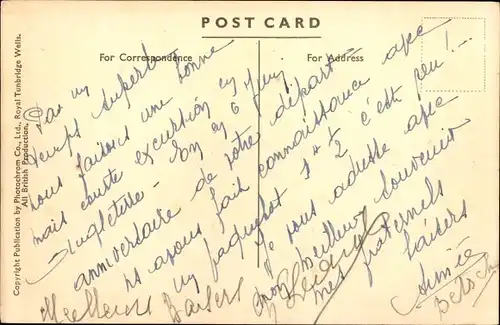 POST CARD
For Correspondence
For Address
Copyright Publication by Photochrom Co., Ltd., Royal Tunbridge Wells.
All British Production.
Par un
temps superbe
nous faisons une bonne
mais courte excursion en
Angleterre - En ce 6
anniversaire de votre départ
ns avons fait connaissance avec
un paquebot 1 + 1/2 c'est peu!...
Je vous adresse avec
mon meilleur souvenir
mes fraternels
baisers
Aimée
Meilleurs Baisers